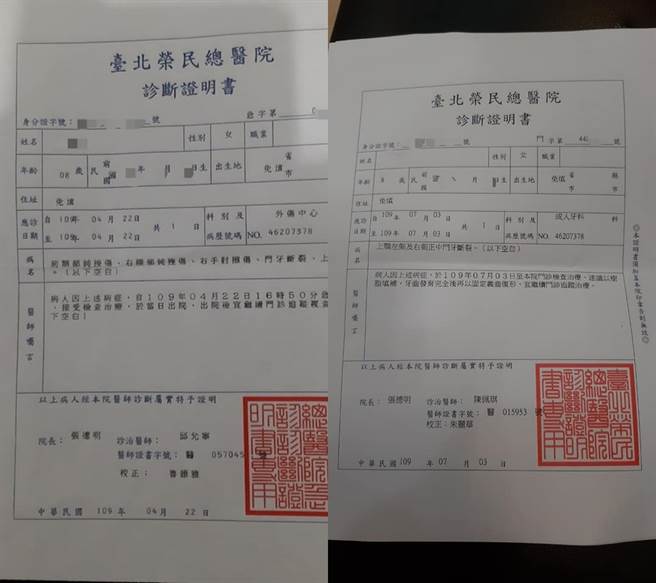 臺北榮民總醫院
診斷證明書
身分證字號：
號
急字第
姓名
性別
女
職業
年齡
08歲
民
前
國
年
月
日生
出生地
免填
省
市
住址
免填
應診
日期
自109年 04月 22日
至109年 04月 22日
共 1
科別及
病歷號碼
外傷中心
NO. 46207378
病
名
右手肘擦傷、門牙斷裂、上
。(以下空白)
醫
師
囑
言
病人因上述病症，自109年04月22日16時50分
，接受檢查治療，於當日出院，出院後宜繼續門診追蹤複查
下空白)
以上病人經本院醫師診斷屬實特予證明
院長：
張德明
診治醫師：
邱允寧
醫師證書字號：醫 057045 號
校正：
中華民國 109年 04月 22日
臺北榮民總醫院
診斷證明書
身分證字號：
號
門字第 44 號
姓名
性別
女
職業
年齡
8歲
民
前
國
年
月
日生
出生地
免填
省
市
縣
市
住址
免填
應診
日期
自109年 07月 03日
至109年 07月 03日
共 1
科別及
病歷號碼
成人牙科
科
NO. 46207378
病
名
上顎左側及右側正中門牙斷裂。(以下空白)
醫
師
囑
言
病人因上述病症，於109年07月03日至本院門診檢查治療。建議以樹
脂填補，牙齒發育完全後再以固定義齒復形，宜繼續門診追蹤治療。
◎本證明書須加蓋本院印章否則無效◎
以上病人經本院醫師診斷屬實特予證明
院長：
張德明
診治醫師：
陳佩琪
醫師證書字號：醫 015953 號
校正：朱麗華
中華民國 109年 07月 03日